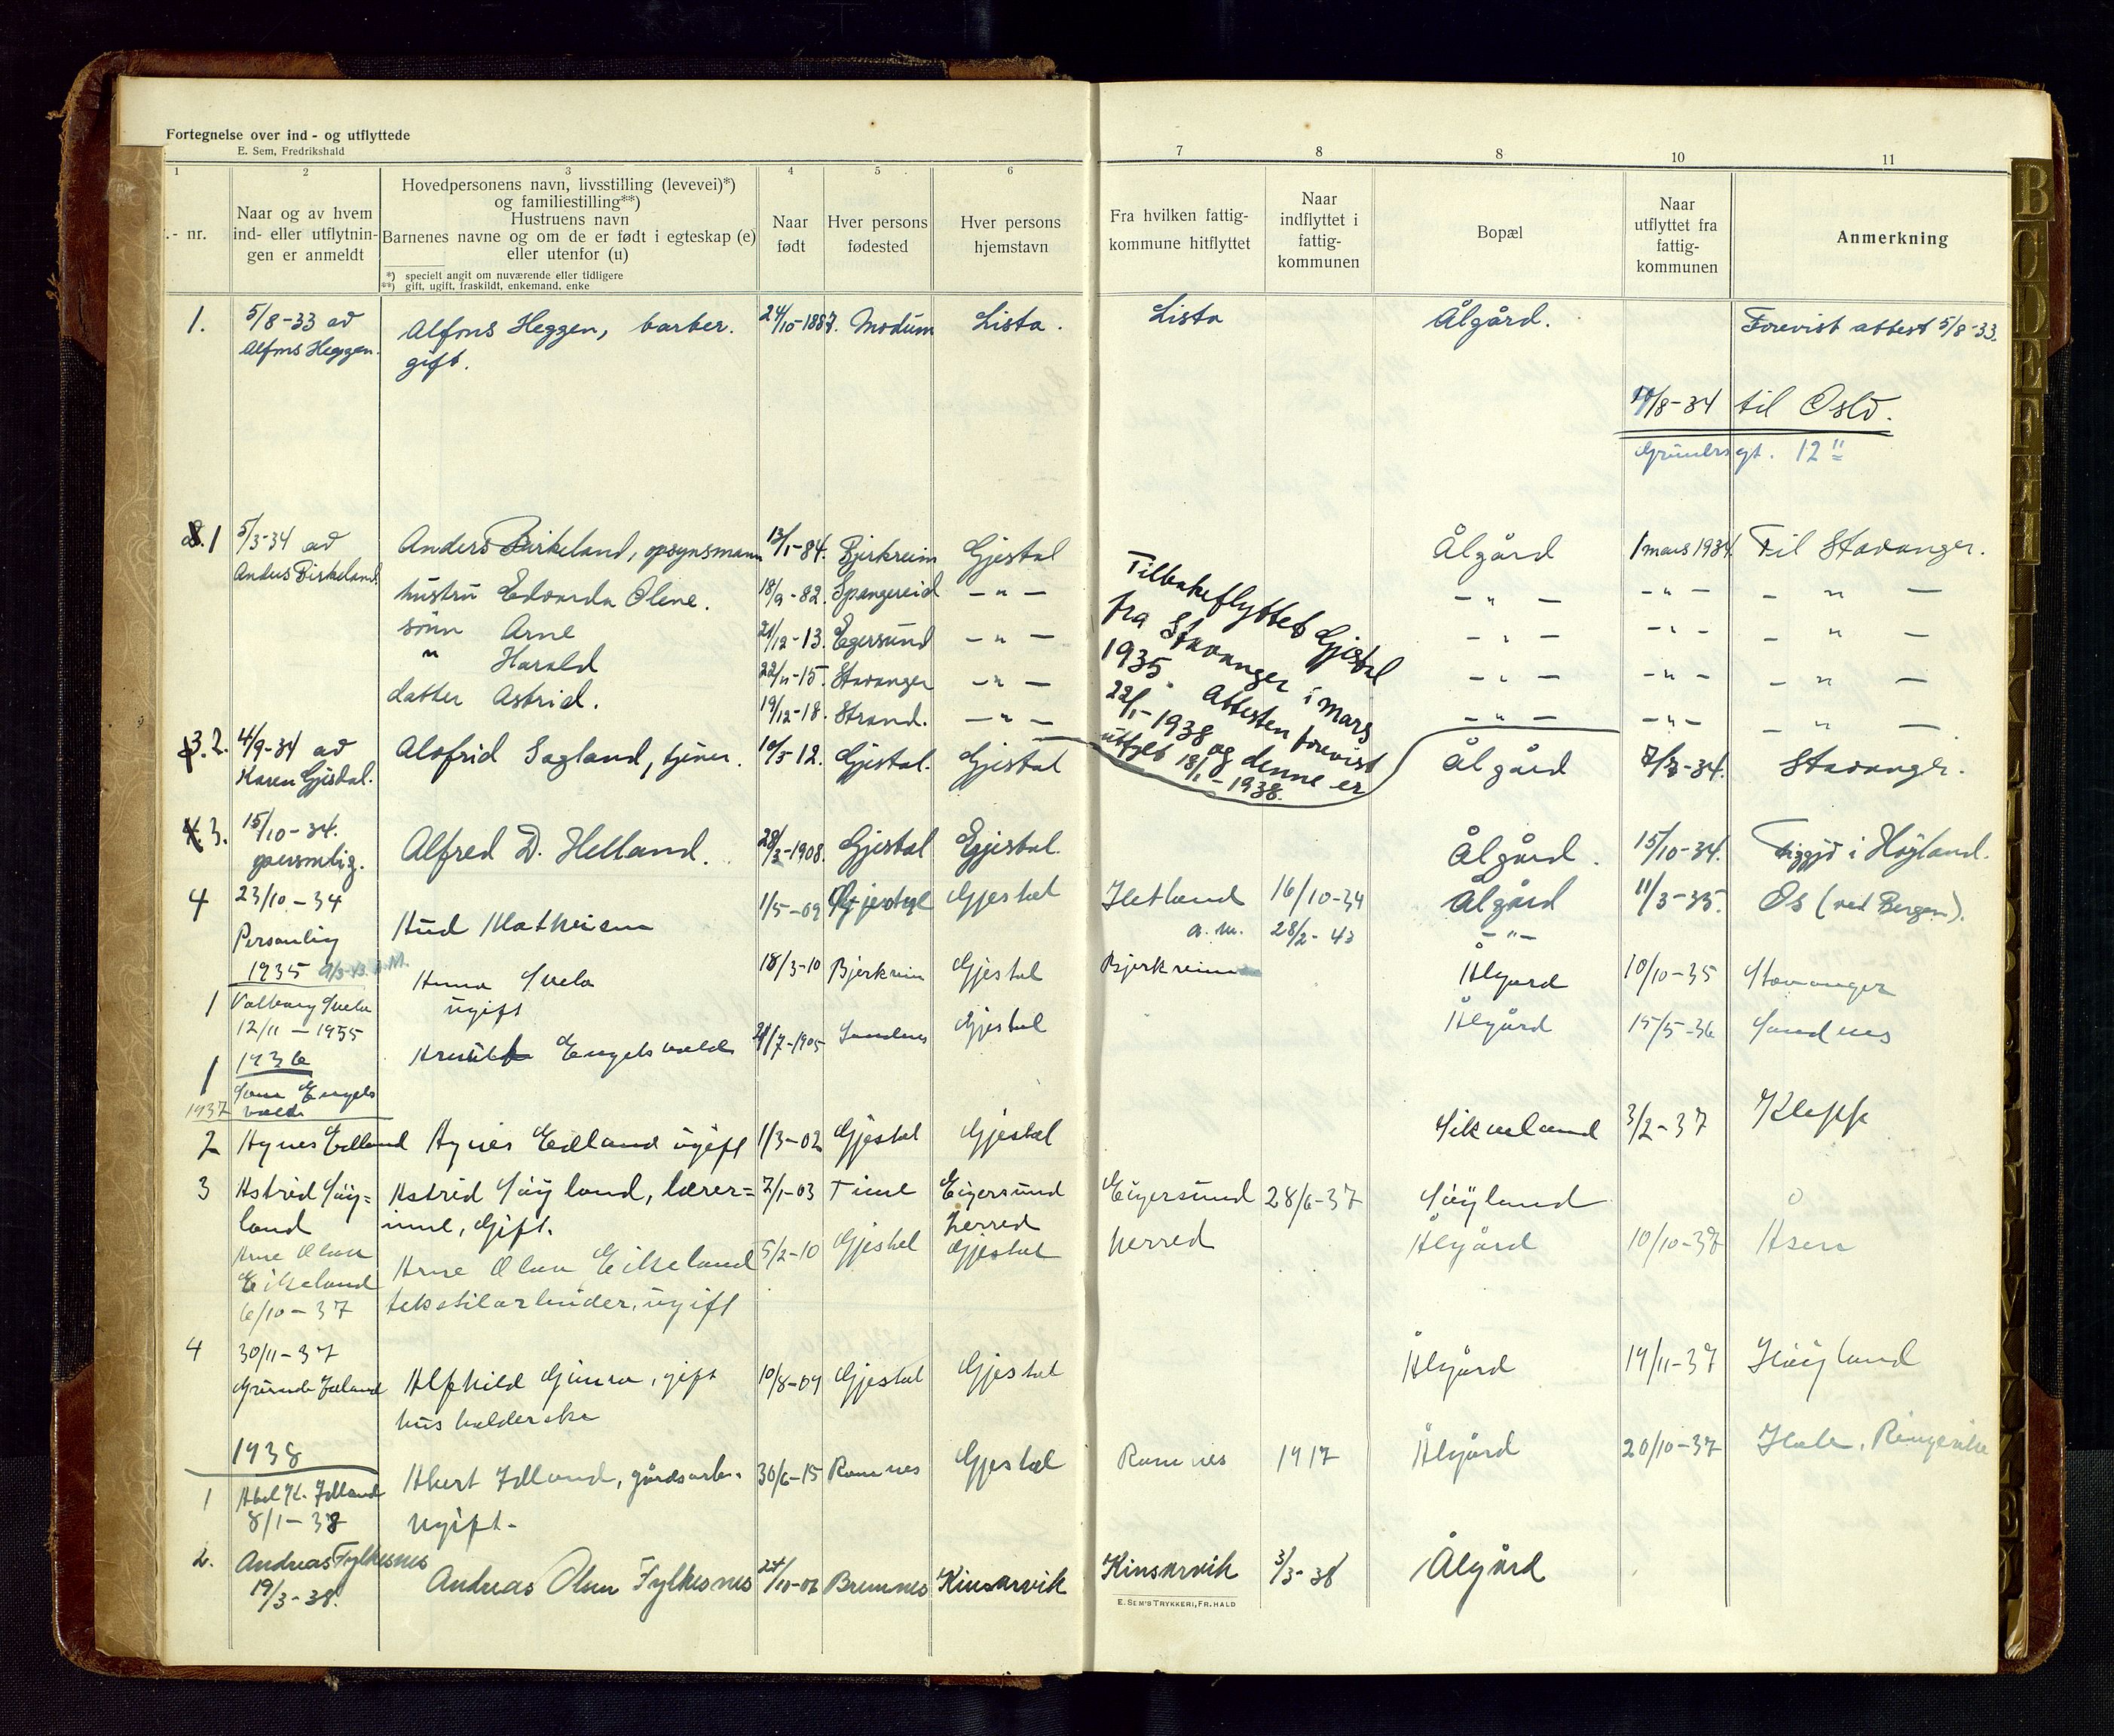 Fortegnelse over ind - og utflyttede
E. Sem, Fredrikshald
1 2 3 4 5 6 7 8 8 10 11
.- nr.
Naar og av hvem
ind- eller utflytnin-
gen er anmeldt
Hovedpersonens navn, livsstilling (levevei)*)
og familiestilling**)
Hustruens navn
Barnenes navne og om de er født i egteskap (e)
eller utenfor (u)
*) specielt angit om nuværende eller tidligere
**) gift, ugift, fraskildt, enkemand, enke
Naar
født
Hver persons
fødested
Hver persons
hjemstavn
Fra hvilken fattig-
kommune hitflyttet
Naar
indflyttet i
fattig-
kommunen
Bopæl
Naar
utflyttet fra
fattig-
kommunen
Anmerkning
1. 5/8-33 av Alfons Heggen, barber. 24/10-1887. Modum Lista. Lista Ålgård. Forevist attest 5/8-33.
Alfons Heggen. gift.
10/8-34 til Oslo.
Grünersgt. 12"
1 5/3-34 av Anders Birkeland, opsynsmann 13/1-84. Bjerkreim Gjestal Ålgård 1 mars 1934. Til Stavanger.
Anders Birkeland. hustru Edvarda Oline. 18/9-82. Spangereid - " - - " - - " - - " -
sönn Arne 21/12-13. Egersund - " - - " - - " - - " -
" Harald 22/11-15. Stavanger - " - - " - - " - - " -
datter Astrid. 19/12-18. Strand. - " - - " - - " - - " -
Tilbakeflyttet Gjestal
fra Stavanger i mars
1935. Attesten forevist
22/1-1938 og denne er
utfylt 18/1-1938.
3.2. 4/9-34 av Alofrid Sagland, tjener. 10/5-12. Gjestal. Gjestal Ålgård 7/8-34. Stavanger.
Karen Gjesdal.
3. 15/10-34. Alfred D. Helland. 28/3-1908. Gjestal Gjestal. Ålgård. 15/10-34. Figgjo i Høyland.
personlig.
4 23/10-34 Aud Mathisen 1/5-09 Gjestal Gjestal Hetland 16/10-34 Ålgård 11/3-35. Os (ved Bergen).
Personlig a.m. 28/2-43 - " -
1935
1 Valborg Svela Anna Svela 18/3-10 Bjerkreim Gjestal Bjerkreim Ålgård 10/10-35 Stavanger
12/11-1935 ugift
1936
1 Engelsvold Engelsvold 7-1905 Sandnes Gjestal Ålgård 15/5-36 Sandnes
1937
2 Agnes Edland Agnes Edland ugift 1/3-02 Gjestal Gjestal Sikveland 3/2-37 Klepp
3 Astrid Söy= Astrid Söyland, lærer= 7/1-03 Time Eigersund Eigersund 28/6-37 Söyland
land inne, Gift. herred herred
Arne Olav Arne Olav Eikeland 5/2-10 Gjestal Gjestal Ålgård 10/10-37 Åsen
Eikeland tekstilarbeider, ugift
6/10-37
4 30/11-37 Alfhild Gimra, gift 10/8-09 Gjestal Gjestal Ålgård 19/11-37 Höyland
husholderske
1938
1 Abel K. Idland Abert Idland, gårdsarb. 30/6-15 Ramnes Gjestal Ramnes 1917 Ålgård 20/10-37 Hole, Ringerike
8/1-38 ugift-
2. Andreas Fylkesnes Andreas Olun Fylkesnes 24/10-06 Bremnes Kinsarvik Kinsarvik 3/3-38 Ålgård
19/3-38.
E. SEM'S TRYKKERI, FR.HALD
B
C
D
E
F
G
H